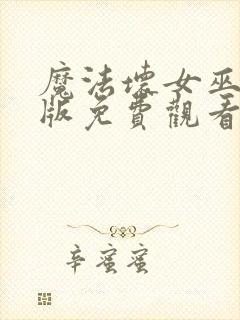 魔法壞女巫
版免費觀看
辛蜜蜜